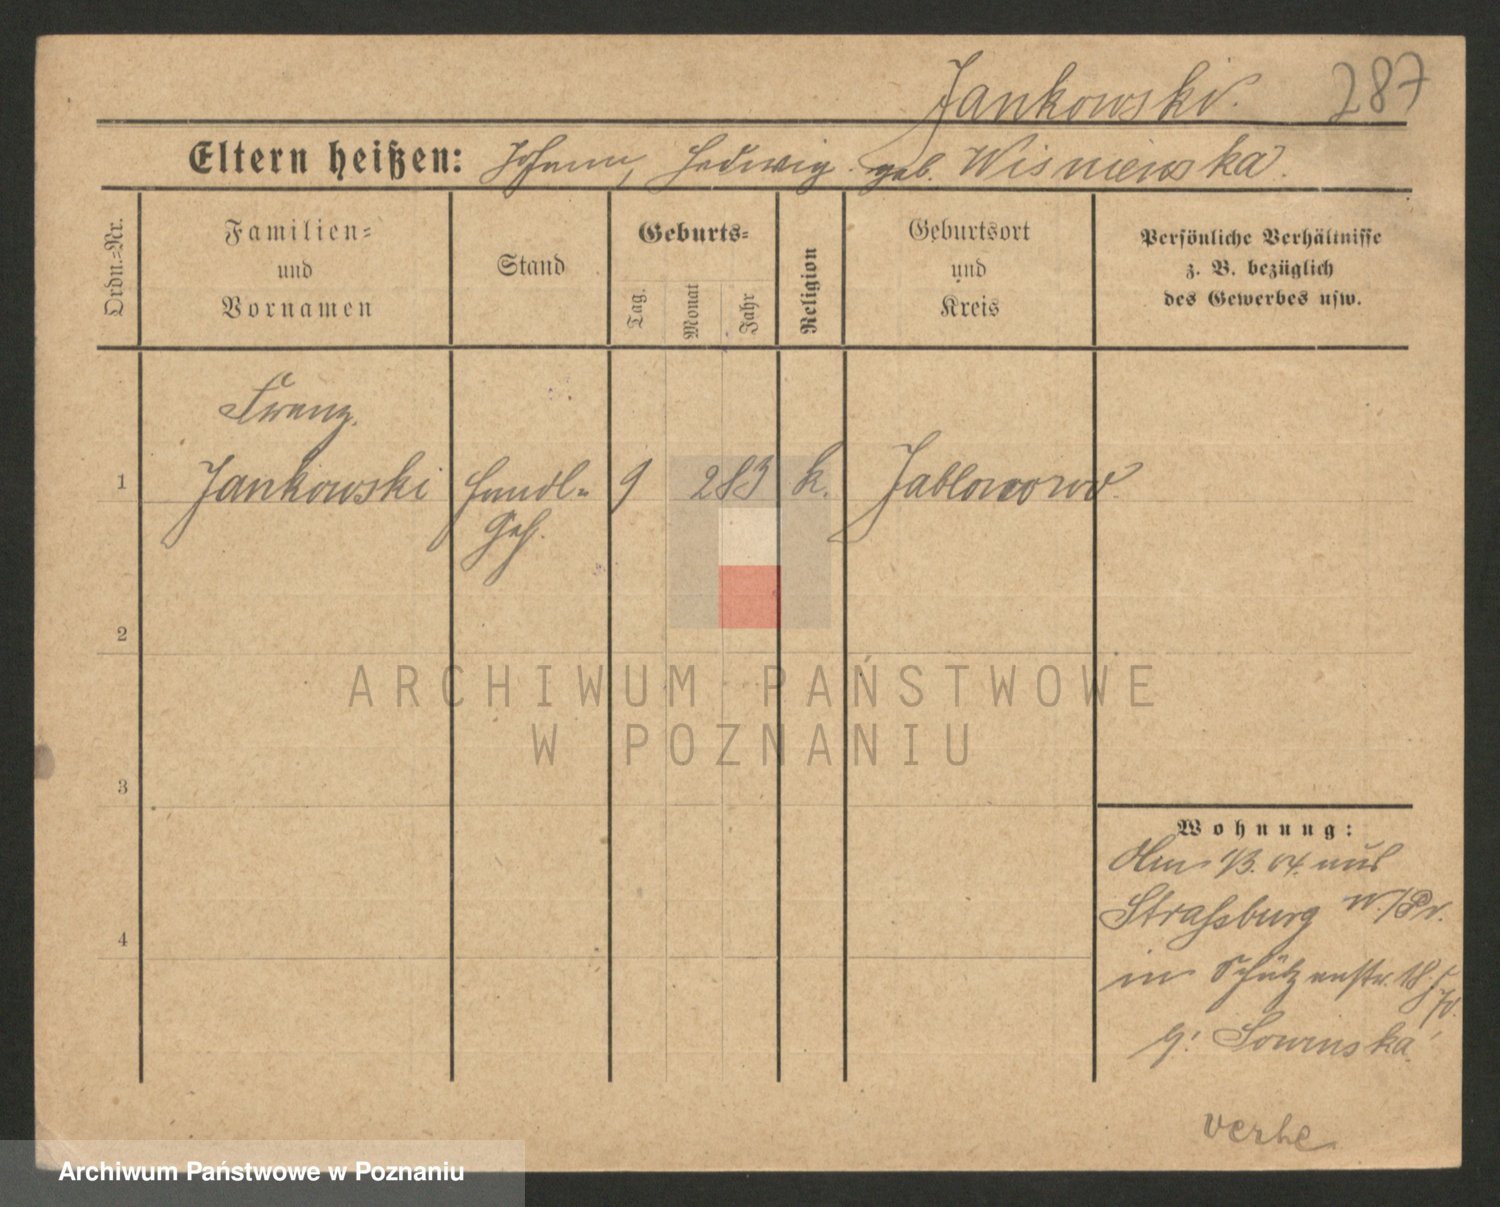 Jankowski. 287
Eltern heißen: Johann, Hedwig geb. Wisniewska.
Ordn.-Nr.
Familien-
und
Vornamen
Stand
Geburts-
Tag.
Monat
Jahr
Religion
Geburtsort
und
Kreis
Persönliche Verhältnisse
z. B. bezüglich
des Gewerbes usw.
Franz
1 Jankowski Handl- 9 2 83 k. Jablonowo
Geh.
2
ARCHIWUM PAŃSTWOWE
W POZNANIU
3
Wohnung:
Am 1/3. 04. aus
Straßburg W./Pr.
in Schützenstr. 18
b/ Sowinska
4
verhe
Archiwum Państwowe w Poznaniu